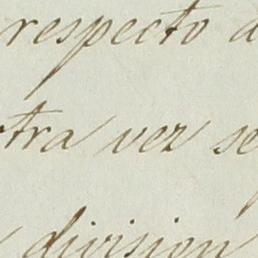 respecto d
otra vez se
division